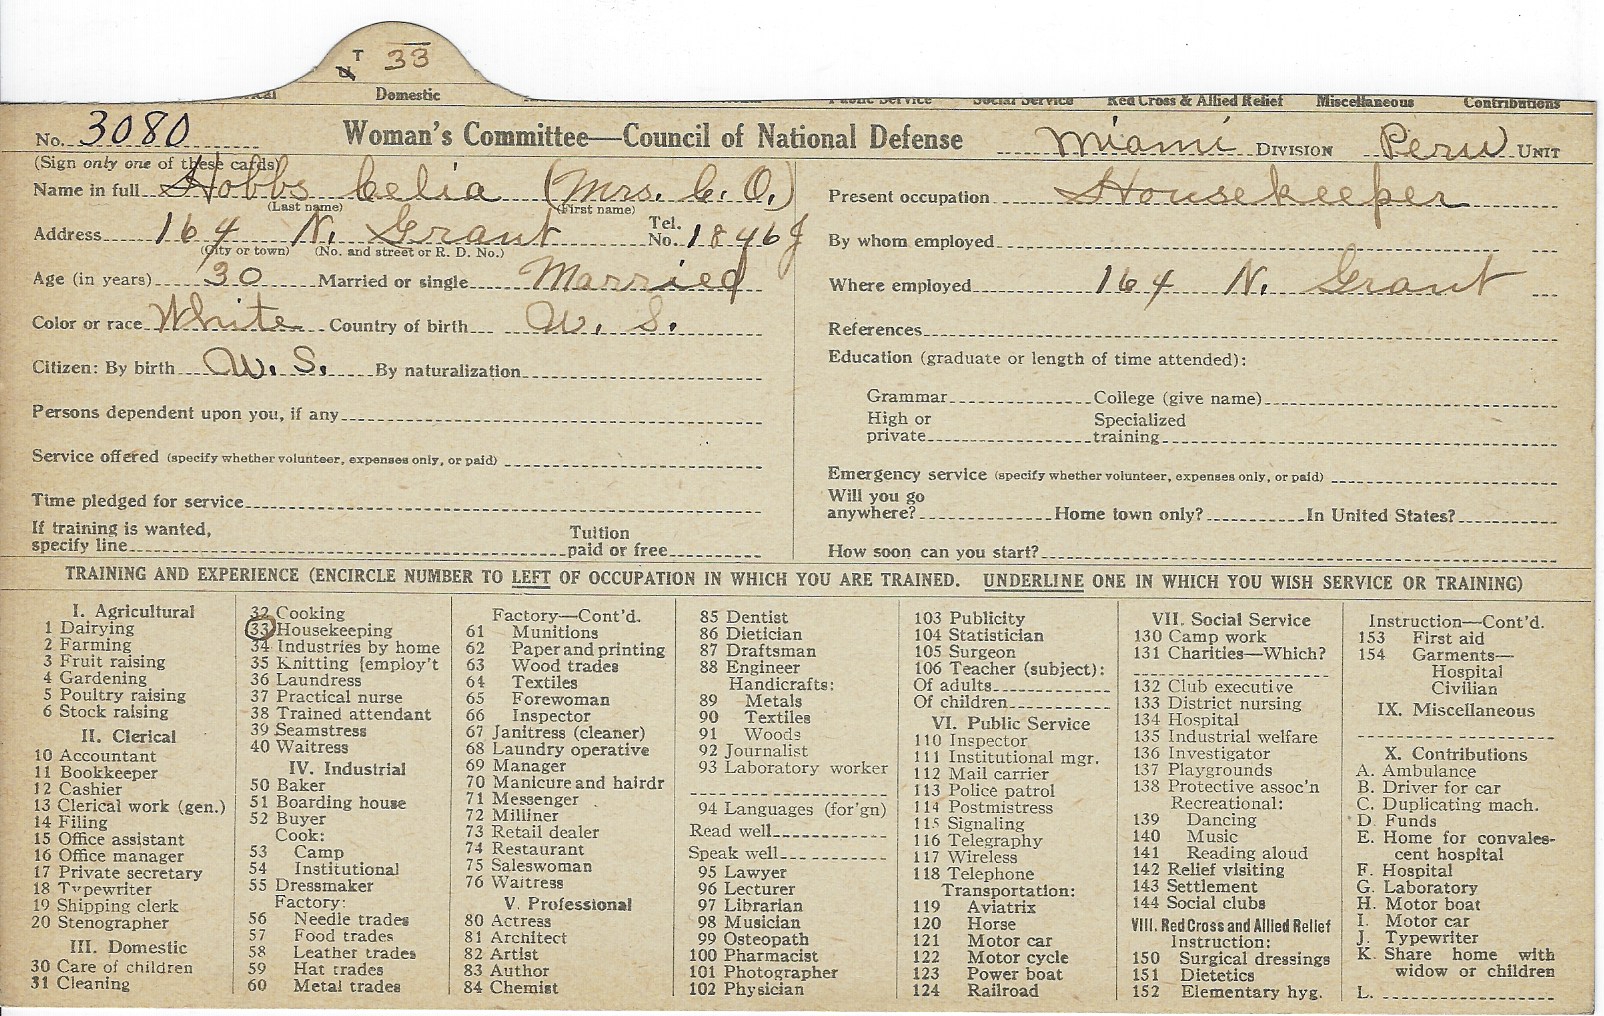 T 33
Domestic Public Service Social Service Red Cross & Allied Relief Miscellaneous Contributions
No. 3080 Woman's Committee—Council of National Defense Miami DIVISION Peru UNIT
(Sign only one of these cards)
Name in full Hobbs Celia (Mrs. C. O.)
(Last name) (First name)
Address 164 N. Grant Tel. No. 1846 J
(City or town) (No. and street or R. D. No.)
Age (in years) 30 Married or single Married
Color or race White Country of birth U. S.
Citizen: By birth U. S. By naturalization
Persons dependent upon you, if any
Service offered (specify whether volunteer, expenses only, or paid)
Time pledged for service
If training is wanted,
specify line Tuition paid or free
Present occupation Housekeeper
By whom employed
Where employed 164 N. Grant
References
Education (graduate or length of time attended):
Grammar College (give name)
High or private Specialized training
Emergency service (specify whether volunteer, expenses only, or paid)
Will you go
anywhere? Home town only? In United States?
How soon can you start?
TRAINING AND EXPERIENCE (ENCIRCLE NUMBER TO LEFT OF OCCUPATION IN WHICH YOU ARE TRAINED. UNDERLINE ONE IN WHICH YOU WISH SERVICE OR TRAINING)
I. Agricultural
1 Dairying
2 Farming
3 Fruit raising
4 Gardening
5 Poultry raising
6 Stock raising
II. Clerical
10 Accountant
11 Bookkeeper
12 Cashier
13 Clerical work (gen.)
14 Filing
15 Office assistant
16 Office manager
17 Private secretary
18 Typewriter
19 Shipping clerk
20 Stenographer
III. Domestic
30 Care of children
31 Cleaning
32 Cooking
33 Housekeeping
34 Industries by home
35 Knitting [employ't
36 Laundress
37 Practical nurse
38 Trained attendant
39 Seamstress
40 Waitress
IV. Industrial
50 Baker
51 Boarding house
52 Buyer
Cook:
53 Camp
54 Institutional
55 Dressmaker
Factory:
56 Needle trades
57 Food trades
58 Leather trades
59 Hat trades
60 Metal trades
Factory—Cont'd.
61 Munitions
62 Paper and printing
63 Wood trades
64 Textiles
65 Forewoman
66 Inspector
67 Janitress (cleaner)
68 Laundry operative
69 Manager
70 Manicure and hairdr
71 Messenger
72 Milliner
73 Retail dealer
74 Restaurant
75 Saleswoman
76 Waitress
V. Professional
80 Actress
81 Architect
82 Artist
83 Author
84 Chemist
85 Dentist
86 Dietician
87 Draftsman
88 Engineer
Handicrafts:
89 Metals
90 Textiles
91 Woods
92 Journalist
93 Laboratory worker
94 Languages (for'gn)
Read well
Speak well
95 Lawyer
96 Lecturer
97 Librarian
98 Musician
99 Osteopath
100 Pharmacist
101 Photographer
102 Physician
103 Publicity
104 Statistician
105 Surgeon
106 Teacher (subject):
Of adults
Of children
VI. Public Service
110 Inspector
111 Institutional mgr.
112 Mail carrier
113 Police patrol
114 Postmistress
115 Signaling
116 Telegraphy
117 Wireless
118 Telephone
Transportation:
119 Aviatrix
120 Horse
121 Motor car
122 Motor cycle
123 Power boat
124 Railroad
VII. Social Service
130 Camp work
131 Charities—Which?
132 Club executive
133 District nursing
134 Hospital
135 Industrial welfare
136 Investigator
137 Playgrounds
138 Protective assoc'n
Recreational:
139 Dancing
140 Music
141 Reading aloud
142 Relief visiting
143 Settlement
144 Social clubs
VIII. Red Cross and Allied Relief
Instruction:
150 Surgical dressings
151 Dietetics
152 Elementary hyg.
Instruction—Cont'd.
153 First aid
154 Garments—
Hospital
Civilian
IX. Miscellaneous
X. Contributions
A. Ambulance
B. Driver for car
C. Duplicating mach.
D. Funds
E. Home for convales-
cent hospital
F. Hospital
G. Laboratory
H. Motor boat
I. Motor car
J. Typewriter
K. Share home with
widow or children
L.